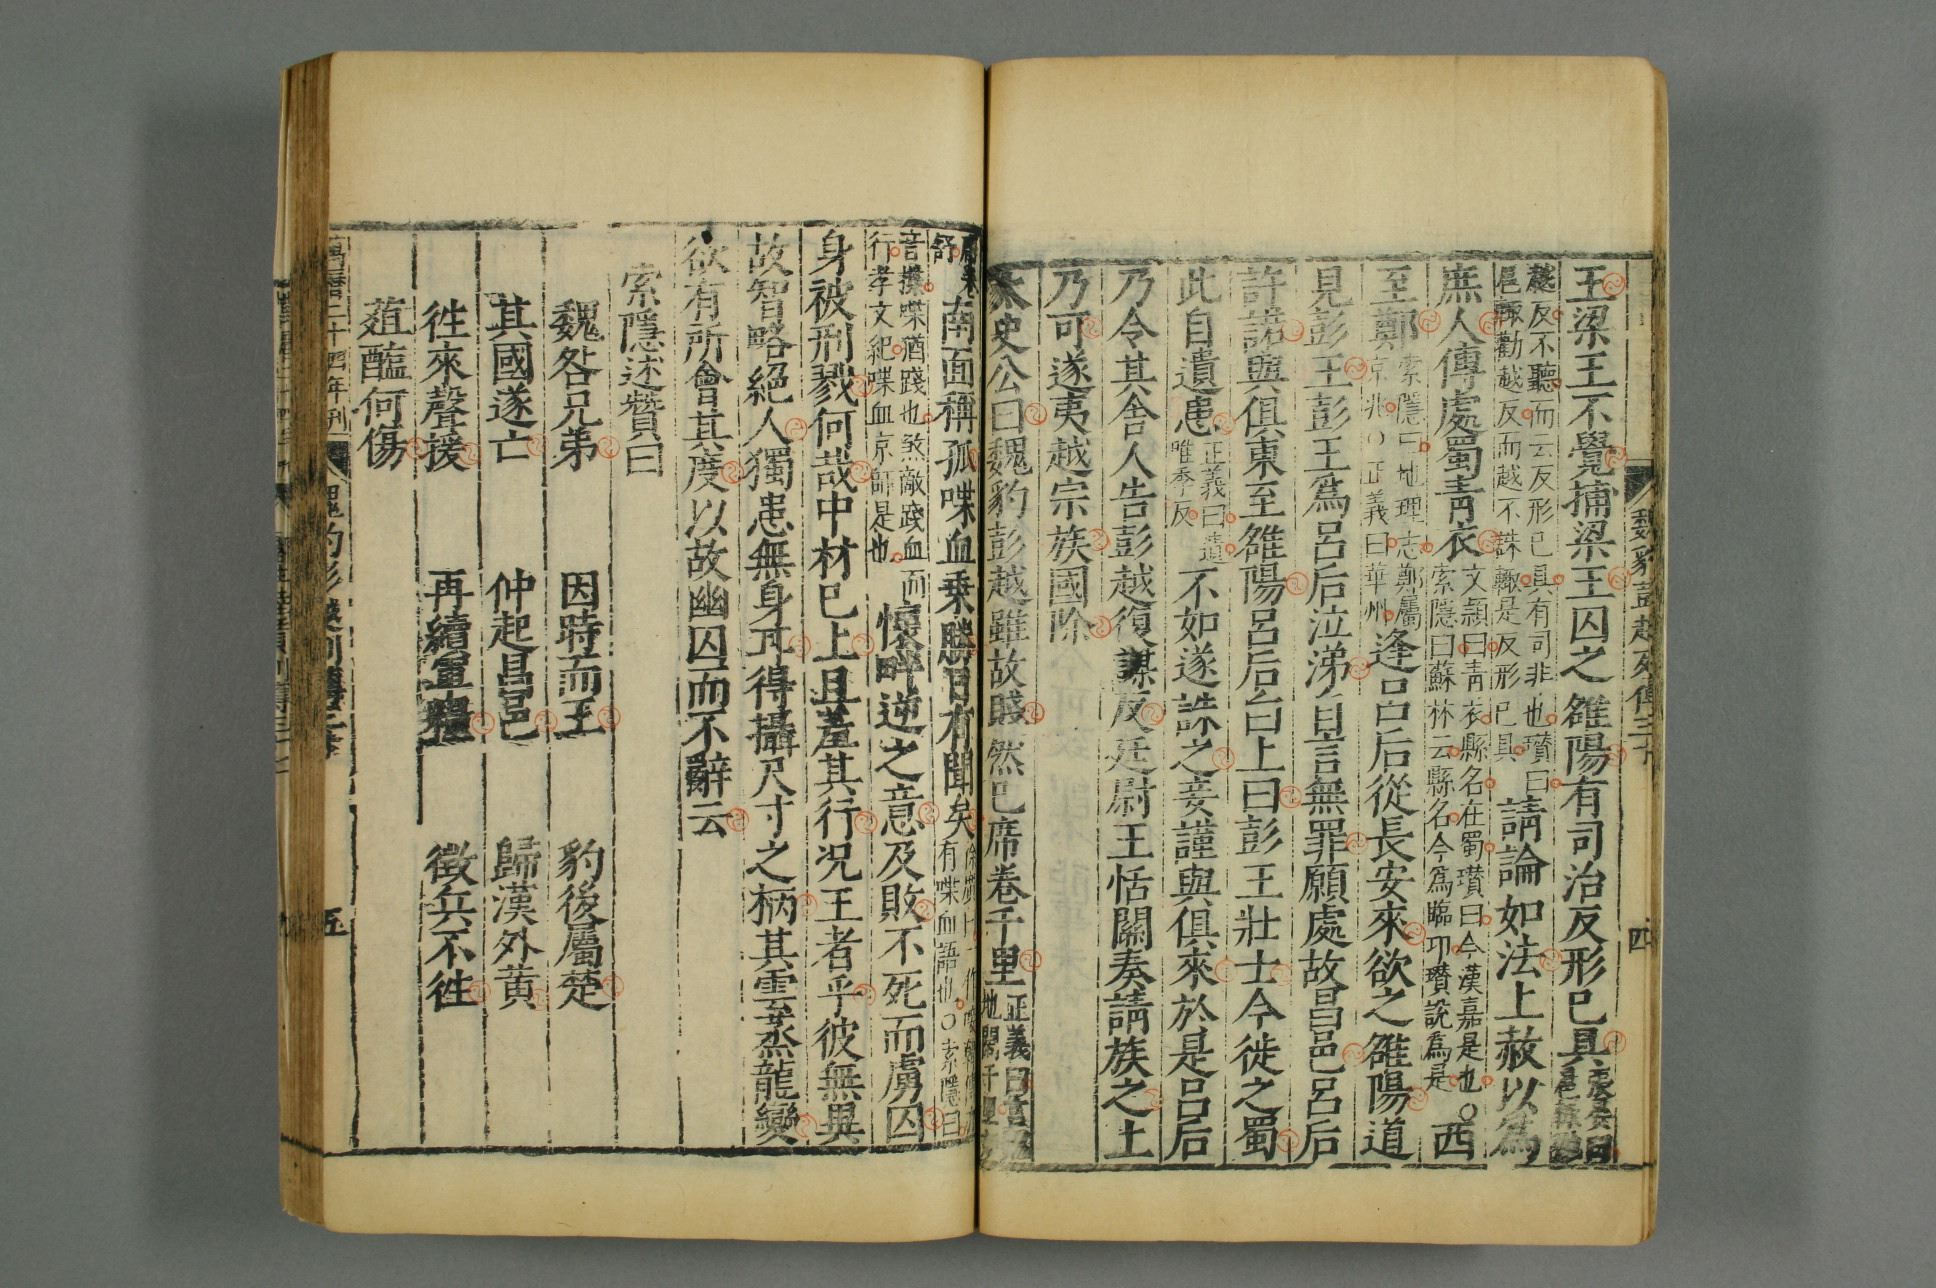 王梁王不覺捕梁王囚之雒陽有司治反形已具張晏曰扈輒勸
越反不聽而云反形已具有司非也瓚曰扈輒勸越反而越不誅輒是反形已具請論如法上赦以為
庶人傳處蜀青衣文頴曰青衣縣名在蜀瓚曰今漢嘉是也○索隱曰蘇林云縣名今為臨邛瓚說為是西
至鄭索隱曰地理志鄭屬京兆○正義曰華州逢呂后從長安來欲之雒陽道
見彭王彭王為呂后泣涕自言無罪願處故昌邑呂后
許諾與俱東至雒陽呂后白上曰彭王壯士今徙之蜀
此自遺患正義曰遺唯季反不如遂誅之妾謹與俱來於是呂后
乃令其舍人告彭越復謀反廷尉王恬關奏請族之上
乃可遂夷越宗族國除
太史公曰魏豹彭越雖故賤然已席卷千里正義曰言魏地闊千里
南面稱孤喋血乗勝日有聞矣有喋血語也○索隱曰
音牒喋猶踐也煞敵踐血而行孝文紀喋血京師是也懷畔逆之意及敗不死而虜囚
身被刑戮何哉中材已上且羞其行况王者乎彼無異
故智略絕人獨患無身耳得攝尺寸之柄其雲蒸龍變
欲有所會其度以故幽囚而不辭云
索隱述贊曰
魏咎兄弟 因時而王 豹後屬楚
其國遂亡 仲起昌邑 歸漢外黃
徃來聲援 再續軍糧 徵兵不徃
葅醢何傷
魏豹彭越列傳三十
四
萬曆二十四年刊
魏豹彭越列傳三十
五